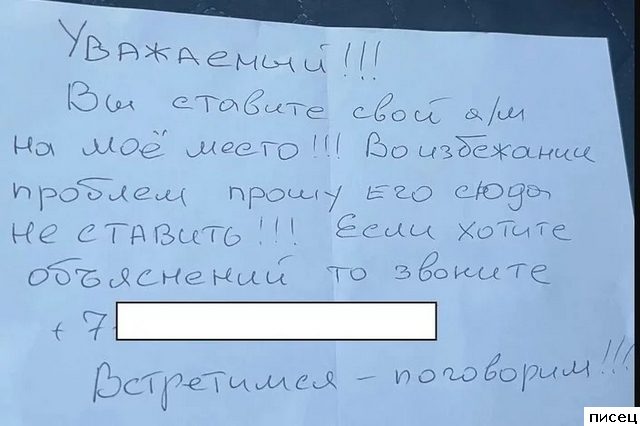 Уважаемый!!!
Вы ставите свой а/м
на моё место!!! Во избежании
проблем прошу его сюда
не ставить!!! Если хотите
объяснений то звоните
+7
Встретимся – поговорим!!!
писец